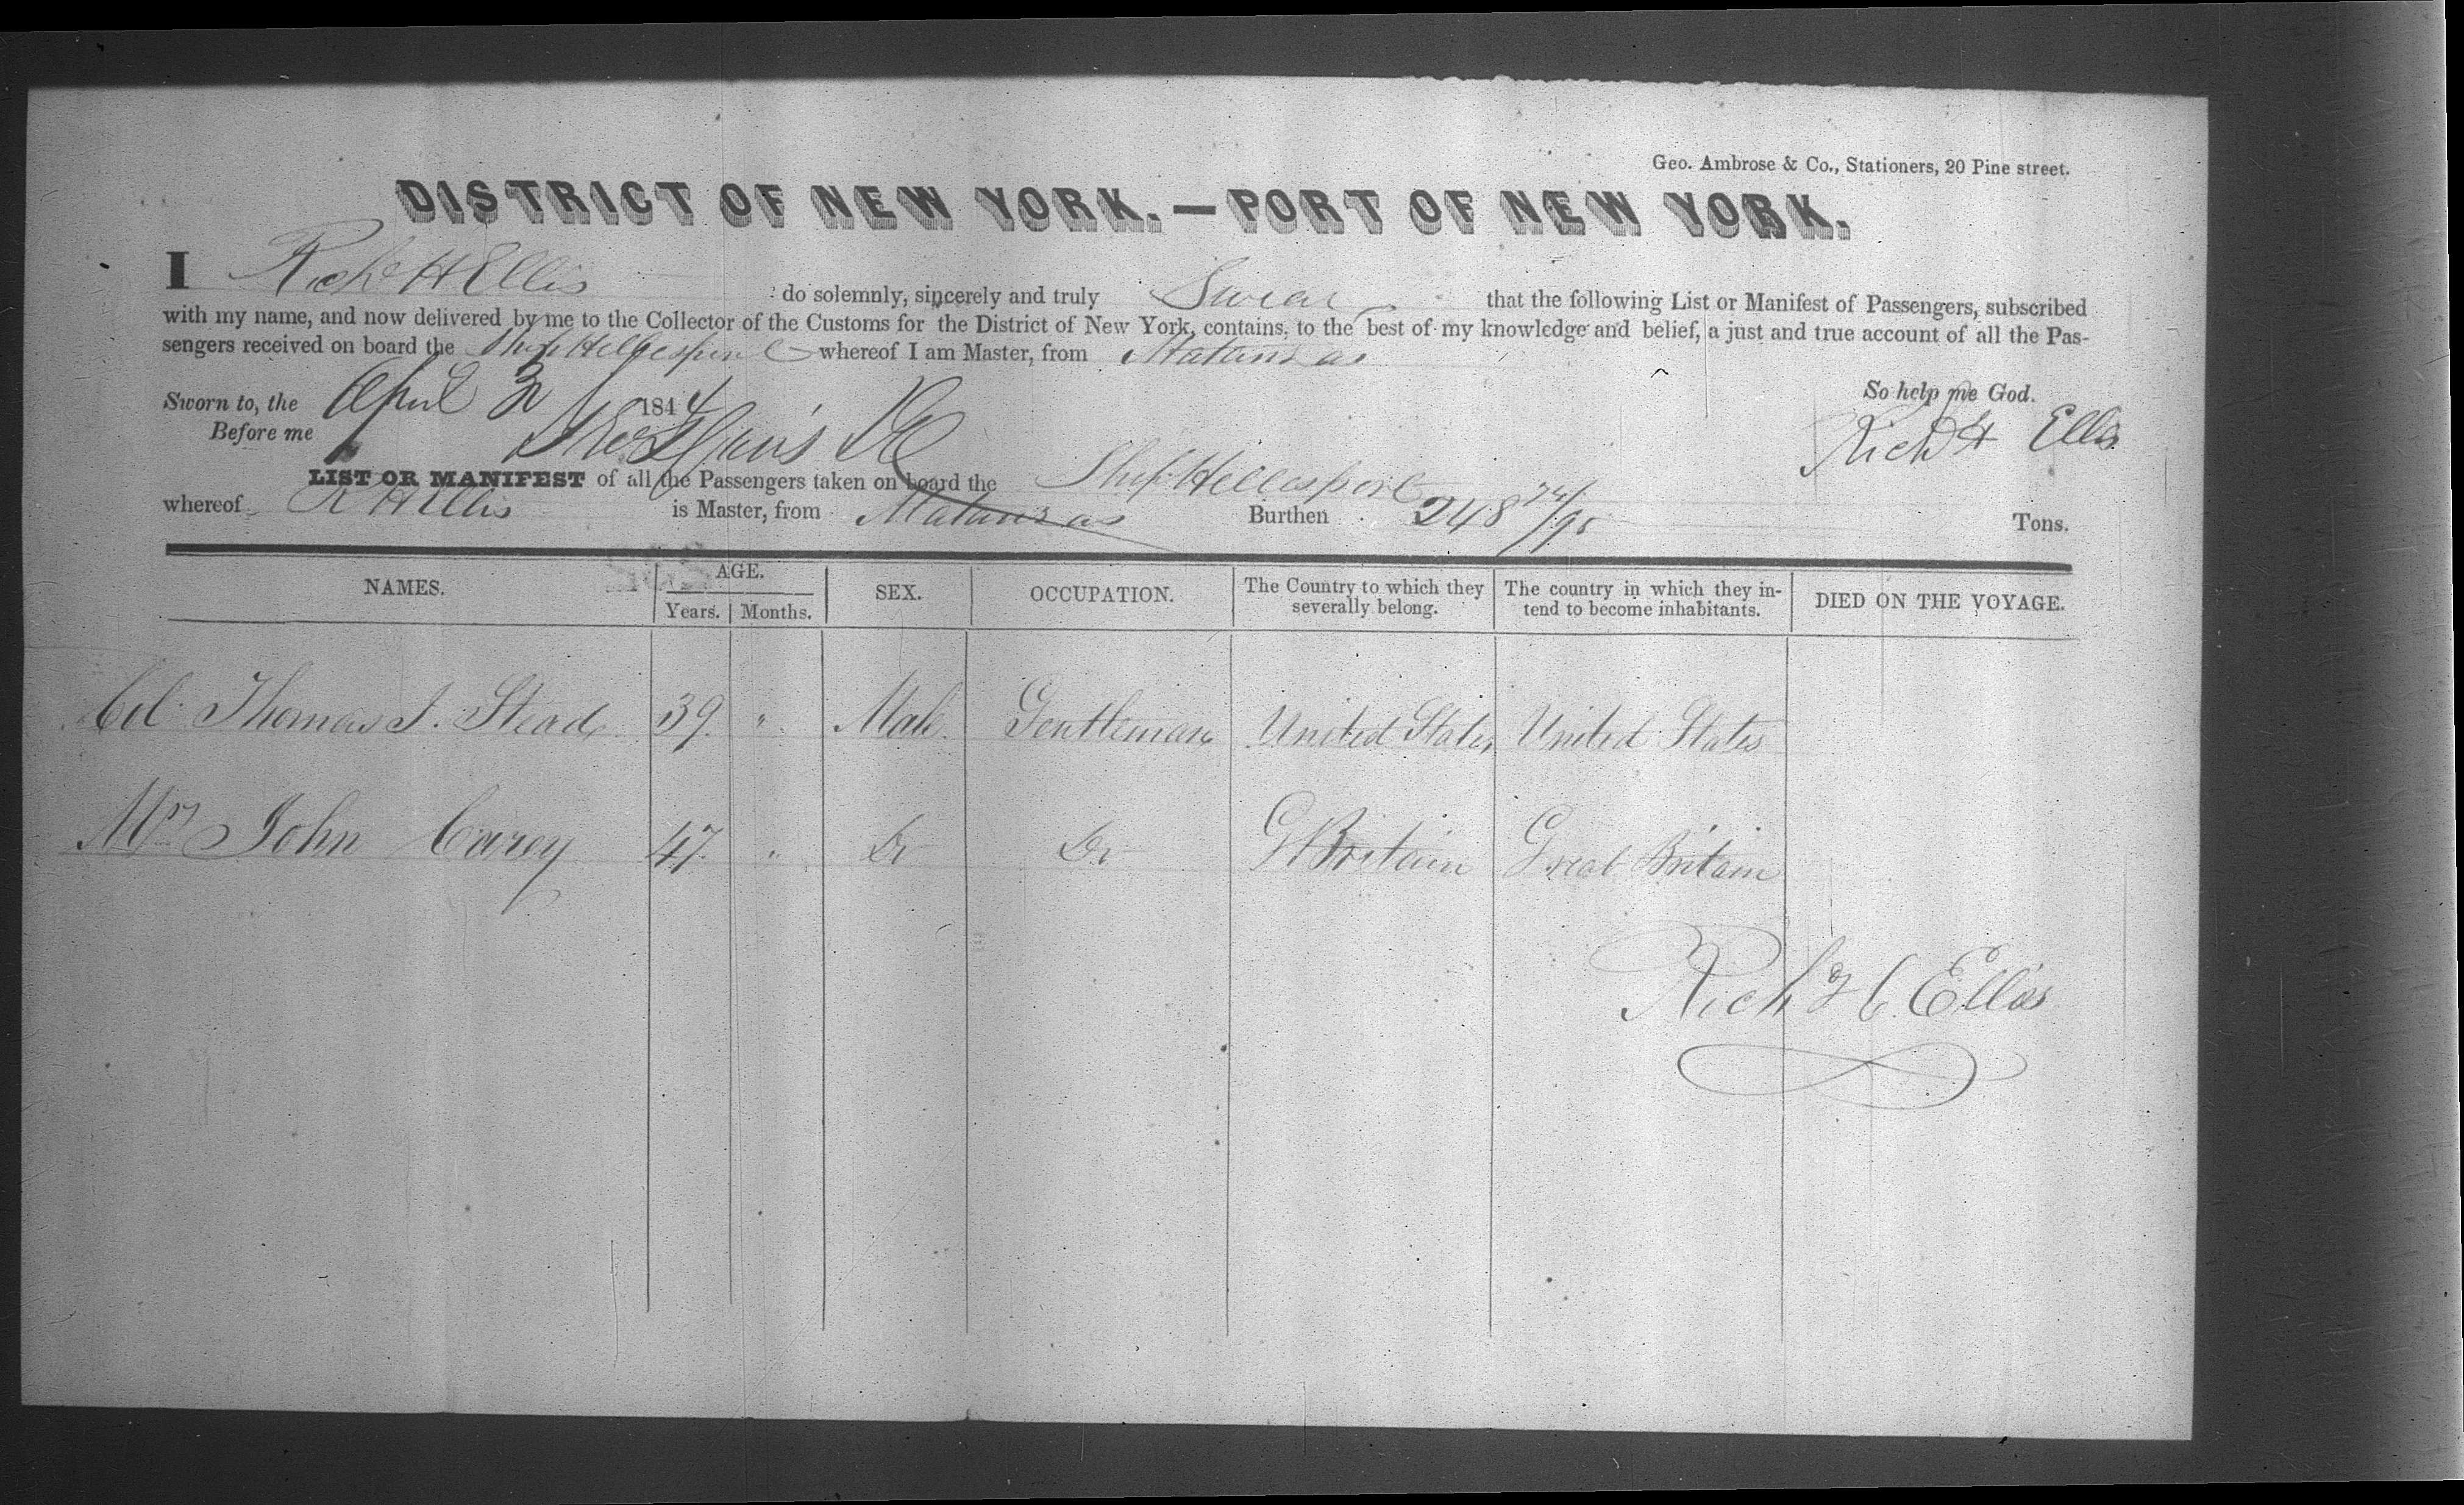 Geo. Ambrose & Co., Stationers, 20 Pine street.
DISTRICT OF NEW YORK.—PORT OF NEW YORK.
I Richd H Ellis do solemnly, sincerely and truly Swear that the following List or Manifest of Passengers, subscribed
with my name, and now delivered by me to the Collector of the Customs for the District of New York, contains, to the best of my knowledge and belief, a just and true account of all the Pas-
sengers received on board the Ship Hellespont whereof I am Master, from Matanzas
So help me God.
Sworn to, the April 3 1844
Before me
Richd H Ellis
LIST OR MANIFEST of all the Passengers taken on board the Ship Hellespont
whereof R H Ellis is Master, from Matanzas Burthen 248 74/95 Tons.
NAMES. AGE. SEX. OCCUPATION. The Country to which they severally belong. The country in which they in-tend to become inhabitants. DIED ON THE VOYAGE.
Years. Months.
Col Thomas J. Stead 39 " Male Gentleman United States United States
Mr John Carey 47 " Do Do G Britain Great Britain
Richd H. Ellis